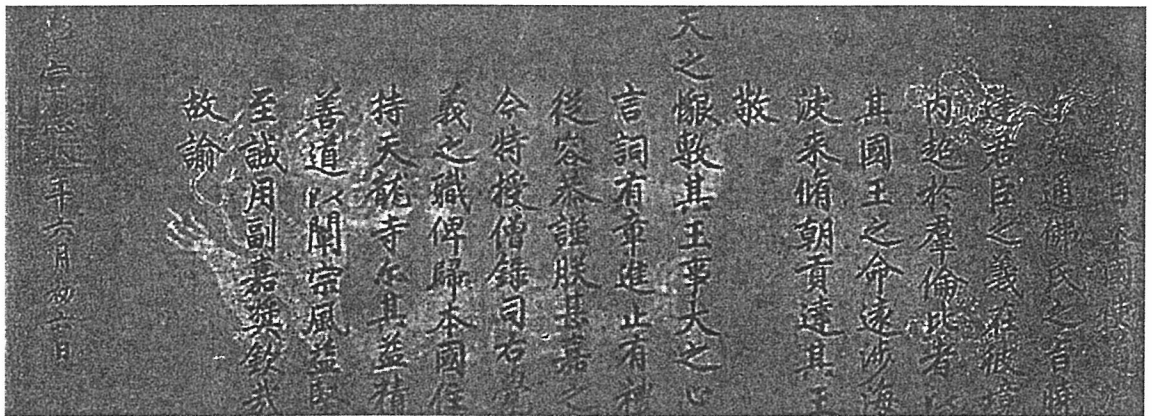 本國使
通佛氏之旨曉
達君臣之義在彼境
内超於羣倫比者以
其國王之命遠涉海
波来脩朝貢達其王
敬
天之懇敦其王事大之心
言詞有章進止有禮
從容恭謹朕甚嘉之
今特授僧録司右覺
義之職俾歸本國住
持天龍寺尔其益精
善道以闡宗風益堅
至誠用副嘉奬欽哉
故諭
宣德年六月初日